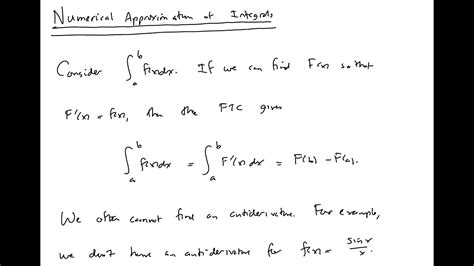 Numerical Approximation of Integrals
Consider ∫_a^b f(x)dx. If we can find F(x) so that
F'(x) = f(x), then the FTC gives
∫_a^b f(x)dx = ∫_a^b F'(x)dx = F(b) - F(a).
We often cannot find an antiderivative. For example,
we don't have an antiderivative for f(x) = sin x / x.